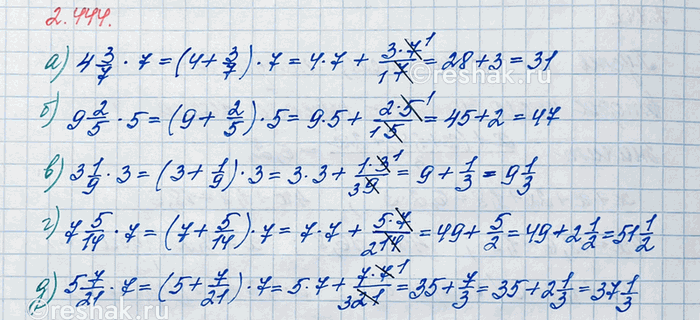 2.444.
а) 4 3/7 · 7 = (4 + 3/7) · 7 = 4 · 7 + 3·7 1/1 7 = 28 + 3 = 31
б) 9 2/5 · 5 = (9 + 2/5) · 5 = 9 · 5 + 2·5 1/1 5 = 45 + 2 = 47
в) 3 1/9 · 3 = (3 + 1/9) · 3 = 3 · 3 + 1·3 1/3 9 = 9 + 1/3 = 9 1/3
г) 7 5/14 · 7 = (7 + 5/14) · 7 = 7 · 7 + 5·7/2 14 = 49 + 5/2 = 49 + 2 1/2 = 51 1/2
д) 5 7/21 · 7 = (5 + 7/21) · 7 = 5 · 7 + 7·7 1/3 21 = 35 + 7/3 = 35 + 2 1/3 = 37 1/3
reshak.ru